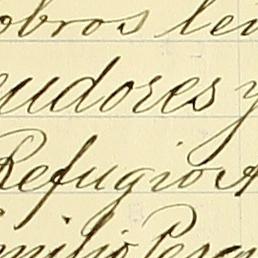 obros lei
eudores y
Refugio A
milio Pera